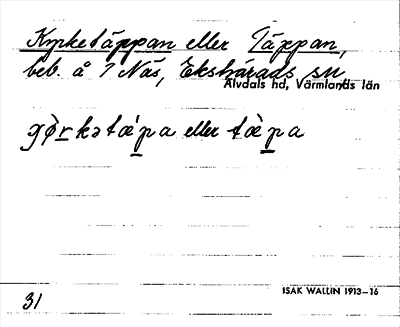 Kyrketäppan eller Täppan,
beb. å 7 Näs, Ekshärads sn
Älvdals hd, Värmlands län
eller
31
ISAK WALLIN 1913–16